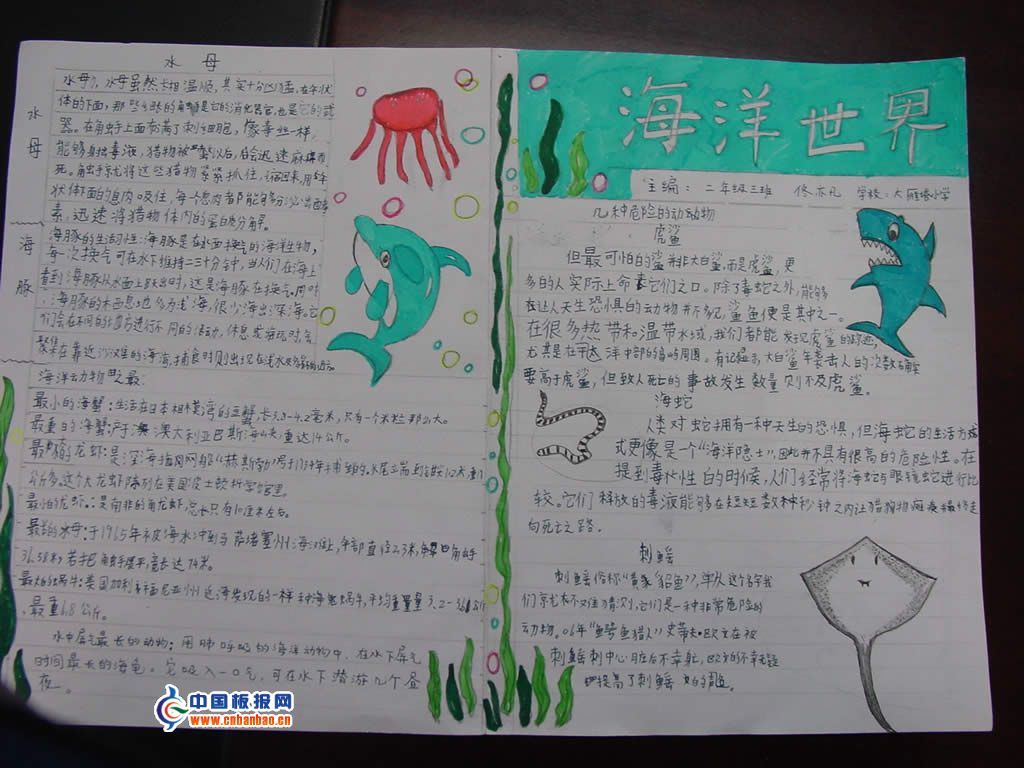 水母
水母
水母。水母虽然长相温顺,其实十分凶猛。在伞状
体的下面,那些细长的触手是它的消化器官,也是它的武
器。在触手上面布满了刺细胞,像毒丝一样,
能够射出毒液,猎物被螫以后,会迅速麻痹而
死。触手就将这些猎物紧紧抓住,缩回来,用伞
状体下面的息肉吸住,每一个息肉都能够分泌出酵
素,迅速将猎物体内的蛋白质分解。
海豚
海豚的生活习性:海豚是在水面换气的海洋生物,
每一次换气可在水下维持二三十分钟,当人们在海上
看到海豚从水面上跃出时,这是海豚在换气。
海豚的栖息地多为浅海,很少游出深海。它
们会在不同的地方进行不同的活动,休息或游玩时,会
聚集在靠近沙滩的海湾,捕食时则出现在浅水
海洋动物之最:
最小的海蟹:生活在日本相模湾的豆蟹,长3.9-4.2毫米,只有一个米粒那么大。
最重的海蟹:产于澳大利亚巴斯海峡,重达14公斤。
最大的龙虾:是深海拖网船“赫斯勒”号于1934年捕到的。
公斤多。这个大龙虾陈列在美国波士顿科学馆里。
最小的龙虾:是南非的角龙虾,总长只有10厘米左右。
最长的水母:于1965年被海水冲到马萨诸塞州海滩上,伞部直径2.3米,触手
36.58米,若把触手展开,高长达74米。
最大的蜗牛:美国加利福尼亚州近海发现的一种海兔蜗牛,平均重量3.2-
最重6.8公斤。
水中屏气最长的动物:用肺呼吸的海洋动物中,在水下屏气
时间最长的海龟。它吸入一口气,可在水下潜游几个昼
夜。
海洋世界
主编:二年级三班 佟亦凡 学校:大雁塔小学
几种危险的动动物
虎鲨
但最可怕的鲨并非大白鲨,而是虎鲨,更
多的人实际上命丧它们之口。除了毒蛇之外,能够
在让人天生恐惧的动物并不多见,鲨鱼便是其中之一。
在很多热带和温带水域,我们都能发现虎鲨的踪迹,
尤其是在太平洋中部的岛屿周围。有记录,大白鲨年袭击人的次数确实
要高于虎鲨,但致人死亡的事故发生数量则不及虎鲨。
海蛇
人类对蛇拥有一种天生的恐惧,但海蛇的生活方
式更像是一个“海洋隐士”,因此并不具有很高的危险性。在
提到毒性的时候,人们经常将海蛇与眼镜蛇进行比
较。它们释放的毒液能够在短短数秒钟之内让猎物瘫痪最终走
向死亡之路。
刺鳐
刺鳐俗称“黄貂鱼”,单从这个名字我
们就不难猜测,它们是一种非常危险的
动物。06年“鳄鱼猎人”史蒂夫·欧文在被
刺鳐刺中心脏后不幸死,欧文的不幸无疑
提高了刺鳐的知名度。
中国板报网
www.cnbanbao.cn